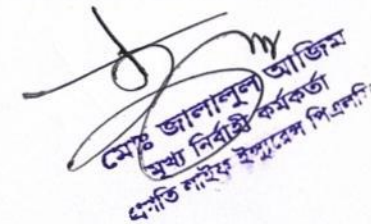 মোঃ জালালুল আজিম
মুখ্য নির্বাহী কর্মকর্তা
প্রগতি লাইফ ইন্স্যুরেন্স পিএলসি